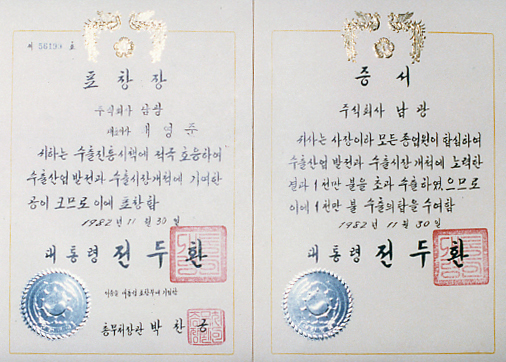 제 56199 호
포창장
주식회사 남광
대표이사
귀하는 수출진흥시책에 적극 호응하여
수출산업 발전과 수출시장개척에 기여한
공이 크므로 이에 표창함
1982년 11월 30일
대통령 전두환
총무처장관 박찬긍
증서
주식회사 남광
귀사는 사장이하 모든 종업원이 합심하여
수출산업 발전과 수출시장 개척에 노력한
결과 1천만 불을 초과 수출하였으므로
이에 1천만 불 수출의 탑을 수여함
1982년 11월 30일
대통령 전두환